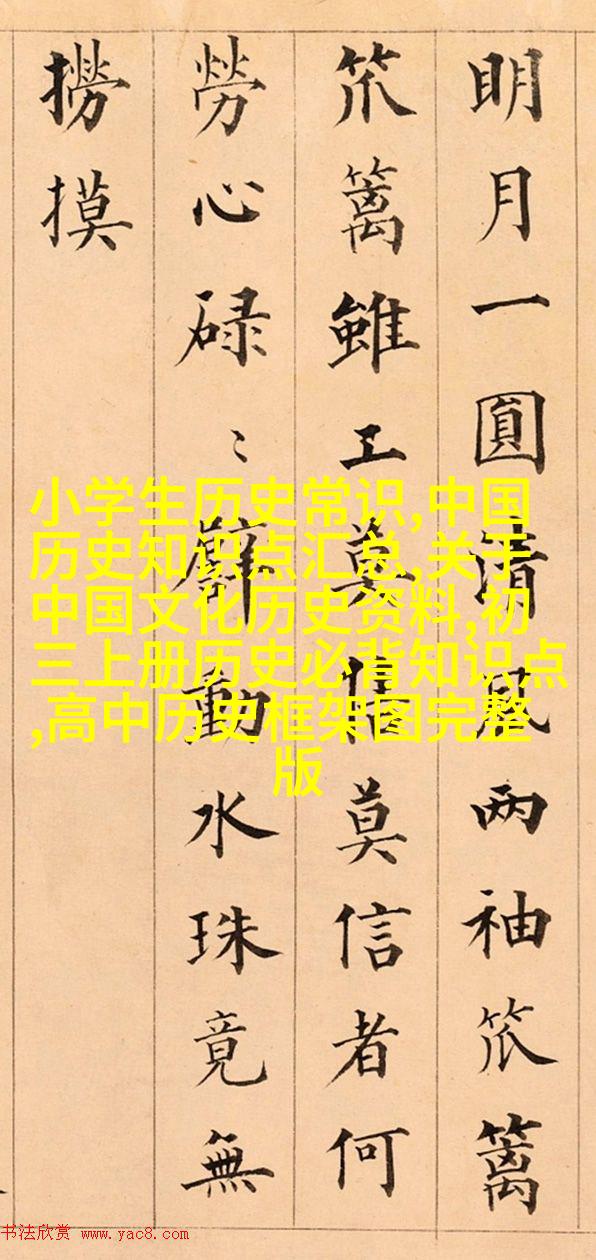 明月一圓清風两袖笊篱
笊篱雖工莫信莫信者何
勞心碌〻動水珠竟無
撈摸
小学生历史常识,中国
历史知识点汇总,关于
中国文化历史资料,初
三上册历史必背知识点
,高中历史框架图完整
版
书法欣赏 www.yac8.com